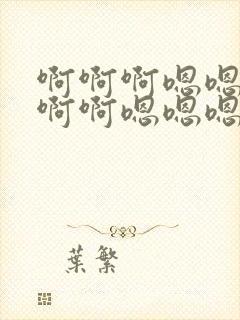 啊啊啊嗯嗯
啊啊嗯嗯嗯
葉繁